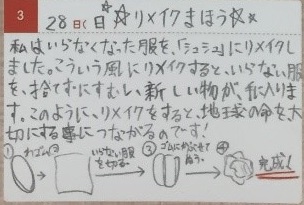 3
28日(日)☆☆リメイクまほう☆☆
私はいらなくなった服を、「シュシュ」にリメイクし
ました。こういう風にリメイクすると、いらない服
を、捨てずにすむし、新しい物が、手に入りま
す。このように、リメイクをすると、地球の命を大
切にする事につながるのです!
① わゴム ② いらない服を切る。 ③ ゴムにかぶせてぬう。 ④ 完成!